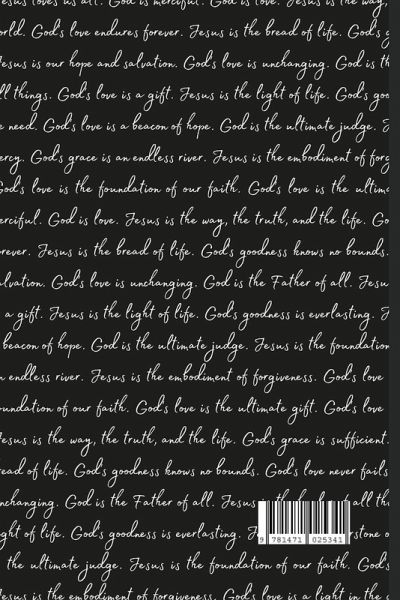 Jesus loves us all. God is merciful. God is love. Jesus is the way,
orld. God's love endures forever. Jesus is the bread of life. God's g
Jesus is our hope and salvation. God's love is unchanging. God is th
ll things. God's love is a gift. Jesus is the light of life. God's goo
e need. God's love is a beacon of hope. God is the ultimate judge. J
ercy. God's grace is an endless river. Jesus is the embodiment of forg
God's love is the foundation of our faith. God's love is the ultima
erciful. God is love. Jesus is the way, the truth, and the life. Go
rever. Jesus is the bread of life. God's goodness knows no bounds.
alvation. God's love is unchanging. God is the Father of all. Jesu
a gift. Jesus is the light of life. God's goodness is everlasting. J
beacon of hope. God is the ultimate judge. Jesus is the foundation
n endless river. Jesus is the embodiment of forgiveness. God's love
oundation of our faith. God's love is the ultimate gift. God's love
Jesus is the way, the truth, and the life. God's grace is sufficient.
read of life. God's goodness knows no bounds. God's love never fails
nchanging. God is the Father of all. Jesus all th
ght of life. God's goodness is everlasting. J rstone o
9 781471 025341
the ultimate judge. Jesus is the foundation of our faith. God's
Jesus is the embodiment of forgiveness. God's love is a light in the